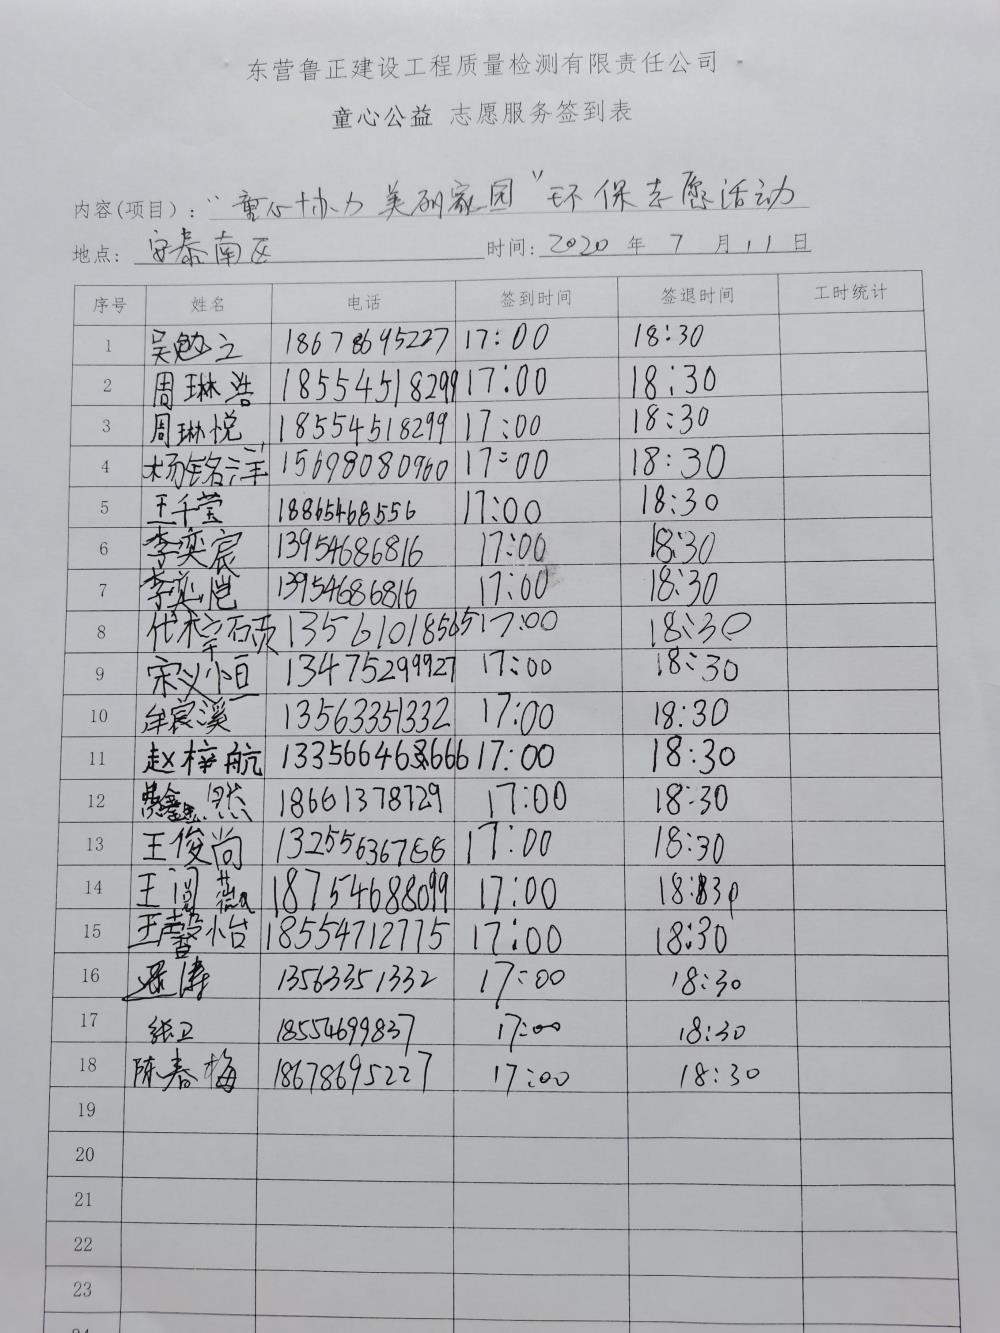 东营鲁正建设工程质量检测有限责任公司
童心公益 志愿服务签到表
内容(项目): "童心协力 美丽家园" 环保志愿活动
地点: 安泰南区 时间: 2020 年 7 月 11 日
序号 姓名 电话 签到时间 签退时间 工时统计
1 吴勉之 18678695227 17:00 18:30
2 周琳浩 18554518299 17:00 18:30
3 周琳悦 18554518299 17:00 18:30
4 杨铭洋 15698080960 17:00 18:30
5 王千莹 18865468556 17:00 18:30
6 李奕宸 13954686816 17:00 18:30
7 李奕恺 13954686816 17:00 18:30
8 13561018565 17:00 18:30
9 宋义恒 13475299927 17:00 18:30
10 牟宸溪 13563351332 17:00 18:30
11 赵梓航 17:00 18:30
12 然 18661378729 17:00 18:30
13 王俊尚 13255636788 17:00 18:30
14 王阅薇 18754688099 17:00 18:30
15 王馨怡 18554712775 17:00 18:30
16 涛 13563351332 17:00 18:30
17 张卫 18554699837 17:00 18:30
18 陈春梅 18678695227 17:00 18:30
19
20
21
22
23
24